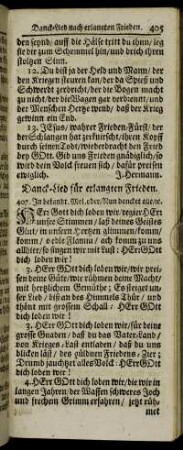 Danck-Lied nach erlangten Frieden. 405
den
auff die Hälse tritt du ihnen, leg
sie dir zum Schemmel hin, und brich ihren
stoltzen Sinn.
12. Du bist ja der Held und Mann/ der
den Kriegen steuren kan/ der da Spieß und
Schwerdt zerbricht/ der die Bogen macht
zu nicht/ der die Wagen gar verbrennt/ und
der Menschen Hertze wend/ daß der Krieg
gewinn ein End.
13. JEsu/ wahrer Frieden-Fürst/ der
der Schlangen hat zerknirscht/ ihren Kopff
durch seinen Todt/ wiederbracht den Fried
bey GOtt. Gib uns Frieden gnädiglich/ so
wird dein Volck freuen sich/ dafür preisen
ewiglich. J. Hermann.
Danck-Lied für erlangten Frieden.
407. In bekandt. Mel. oder/ Nun dancket alle/ ꝛc.
HErr Gott dich loben wir/ regier/ HErr
unsre Stimmen/ laß deines Geistes
Glut/ in unsern Hertzen glimmen/ komm/
komm/ o edle Flamm/ ach komm zu uns
allhier/ so singen wir mit Lust: HErr GOtt
dich loben wir!
2. HErr GOtt dich loben wir/ wir preisen
deine Güte/ wir rühmen deine Macht/
mit hertzlichem Gemüthe; Es steiget unser
Lied/ biß an des Himmels Thür/ und
thönt mit grossem Schall: HErr GOtt
dich loben wir!
3. HErr GOtt dich loben wir/ für deine
grosse Gnaden/ daß du das Vaterland/
von Krieges-Last entladen/ daß du uns
blicken läst/ des güldnen Friedens-Zier;
Drum jauchzet alles Volck: HErr GOtt
dich loben wir!
4. HErr GOtt dich loben wir/ die wir in
langen Jahren/ der Waffen schweres Joch
und frechen Grimm erfahren/ jetzt rüh-
met